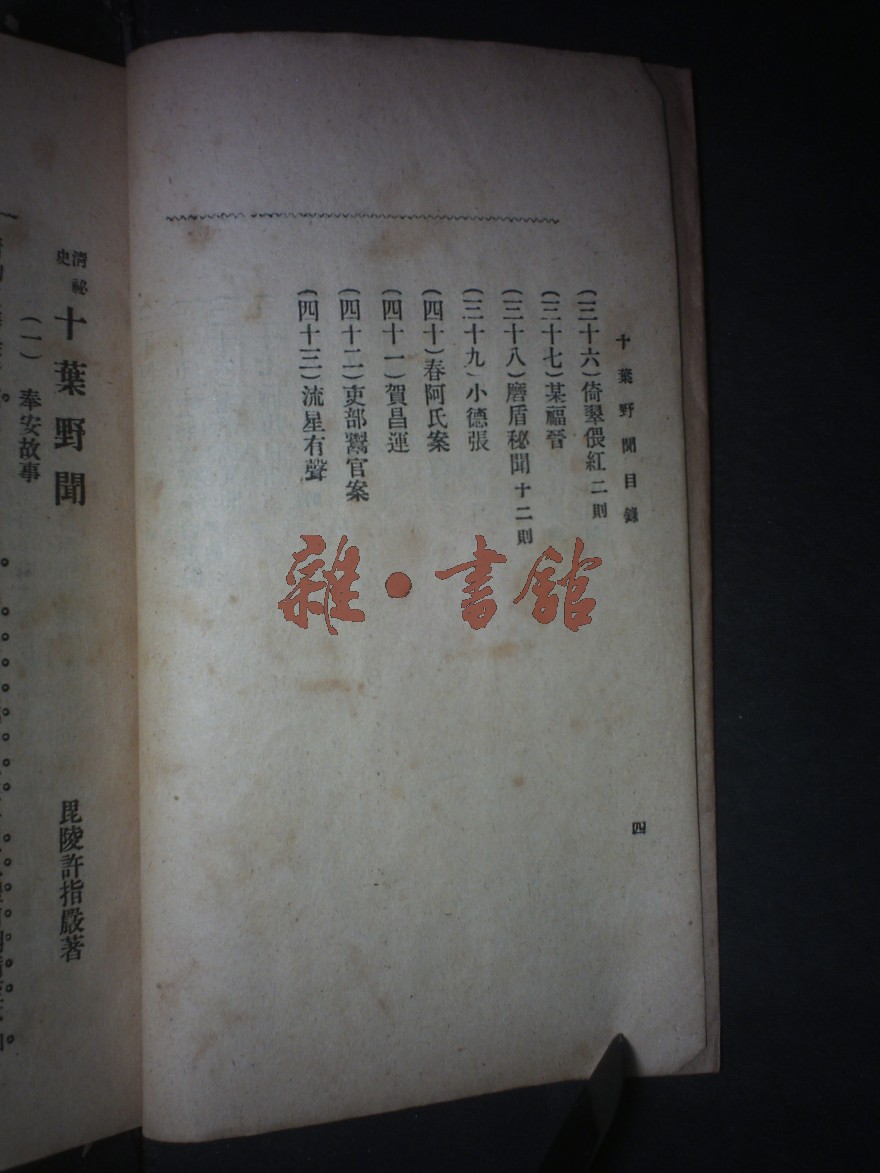 十葉野聞目錄
四
(三十六)倚翠偎紅二則
(三十七)某福晉
(三十八)磨盾秘聞十二則
(三十九)小德張
(四十)春阿氏案
(四十一)賀昌運
(四十二)吏部鬻官案
(四十三)流星有聲
雜·書館
清祕史
十葉野聞
毘陵許指嚴著
(一)奉安故事